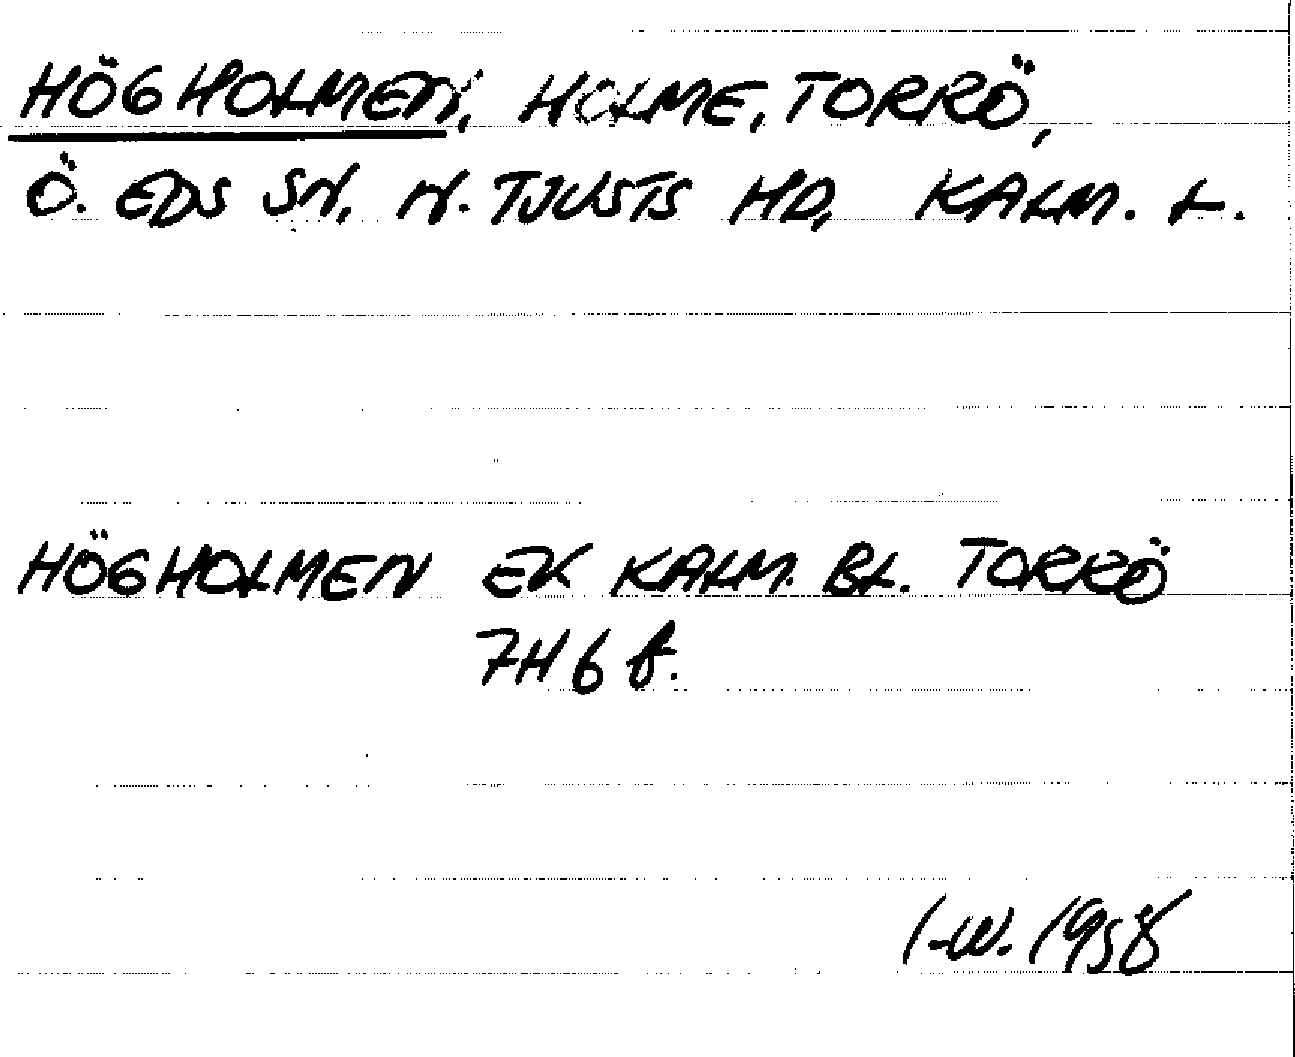 HÖGHOLMEN, HOLME, TORRÖ,
Ö. EDS SN, N. TJUSTS HD, KALM. L.
HÖGHOLMEN EK KALM. BL. TORRÖ
7H6f.
I-W. 1958